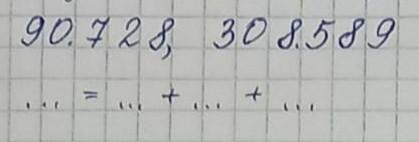 90.728, 308.589
... = ... + ... + ...